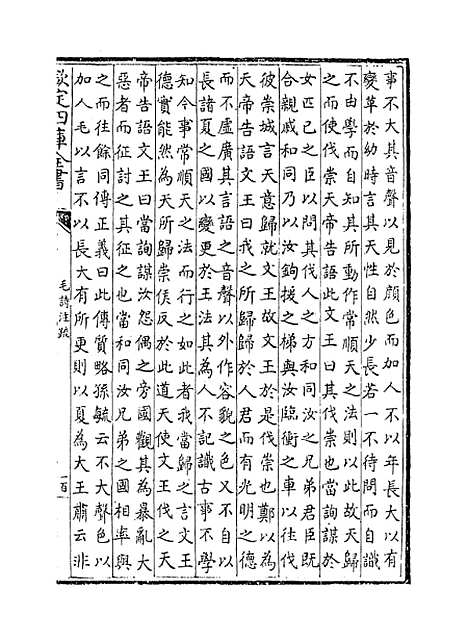 事不大其音聲以見於顏色而加人不以年長大以有
變革於幼時言其天性自然少長若一不待問而自識
不由學而自知其所動作常順天之法則以此故天歸
之而使伐崇天帝告語此文王曰其伐崇也當詢謀於
女匹己之臣以問其伐人之方和同汝之兄弟君臣既
合親戚和同乃以汝鉤援之梯與汝臨衝之車以往伐
彼崇城言天意歸就文王故文王於是伐崇也鄭以為
天帝告語文王曰我之所歸歸於人君而有光明之德
而不虛廣其言語之音聲以外作容貌之色又不自以
長諸夏之國以變更於王法其為人不記識古事不學
知今事常順天之法而行之如此者我當歸之言文王
德實能然為天所歸崇侯反於此道天使文王伐之天
帝告語文王曰當詢謀汝怨偶之旁國觀其為暴亂大
惡者而征討之其征之也當和同汝兄弟之國相率與
之而往餘同傳正義曰此傳質略孫毓云不大聲色以
加人毛以言不以長大有所更則以夏為大王肅云非
欽定四庫全書
毛詩注疏